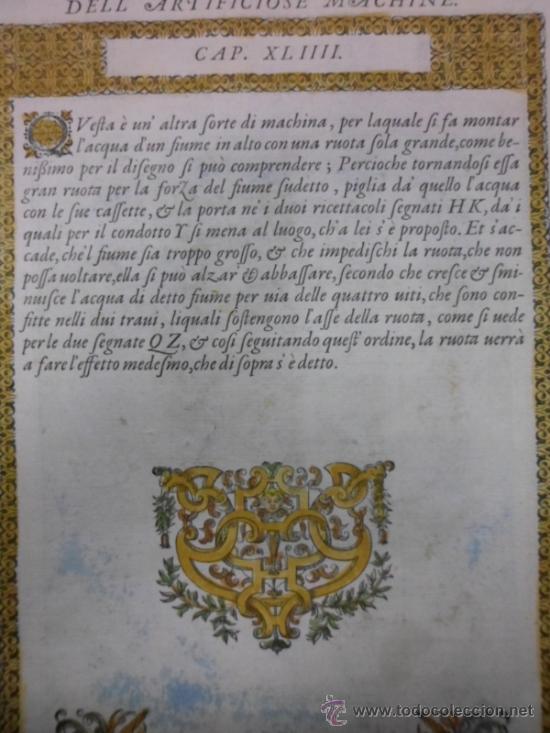 DELL'ARTIFICIOSE MACHINE.
CAP. XLIIII.
QVesta è un' altra sorte di machina, per laquale si fa montar
l'acqua d'un fiume in alto con una ruota sola grande, come be-
nissimo per il disegno si può comprendere; Percioche tornandosi essa
gran ruota per la forza del fiume sudetto, piglia da' quello l'acqua
con le sue cassette, & la porta ne' i duoi ricettacoli segnati HK, da' i
quali per il condotto Y si mena al luogo, ch'a lei s'è proposto. Et s'ac-
cade, che'l fiume sia troppo grosso, & che impedischi la ruota, che non
possa voltare, ella si può alzar & abbassare, secondo che cresce & smi-
nuisce l'acqua di detto fiume per uia delle quattro uiti, che sono con-
fitte nelli dui traui, liquali sostengono l'asse della ruota, come si uede
per le due segnate QZ, & così seguitando quest' ordine, la ruota uerrà
a fare l'effetto medesmo, che di sopra s'è detto.
© www.todocoleccion.net